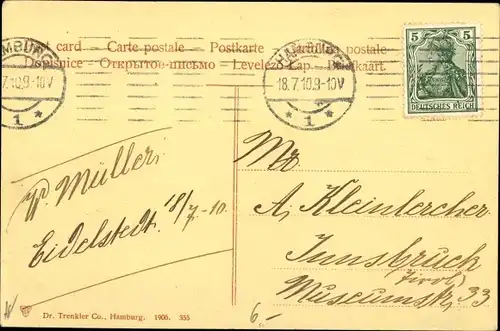 card – Carte postale – Postkarte – postale
Dopisnice – Открытое-письмо – Levelező Lap
HAMBURG
18.7.10.9-10V
* 1 *
7.10.9-10V
1 *
5 5
DEUTSCHES REICH
Mr
A. Kleinlercher
Innsbruck
(Tirol)
Museumstr. 33
W. Müller
Eidelstedt 18/7-10
Dr. Trenkler Co., Hamburg. 1906. 355
6.-